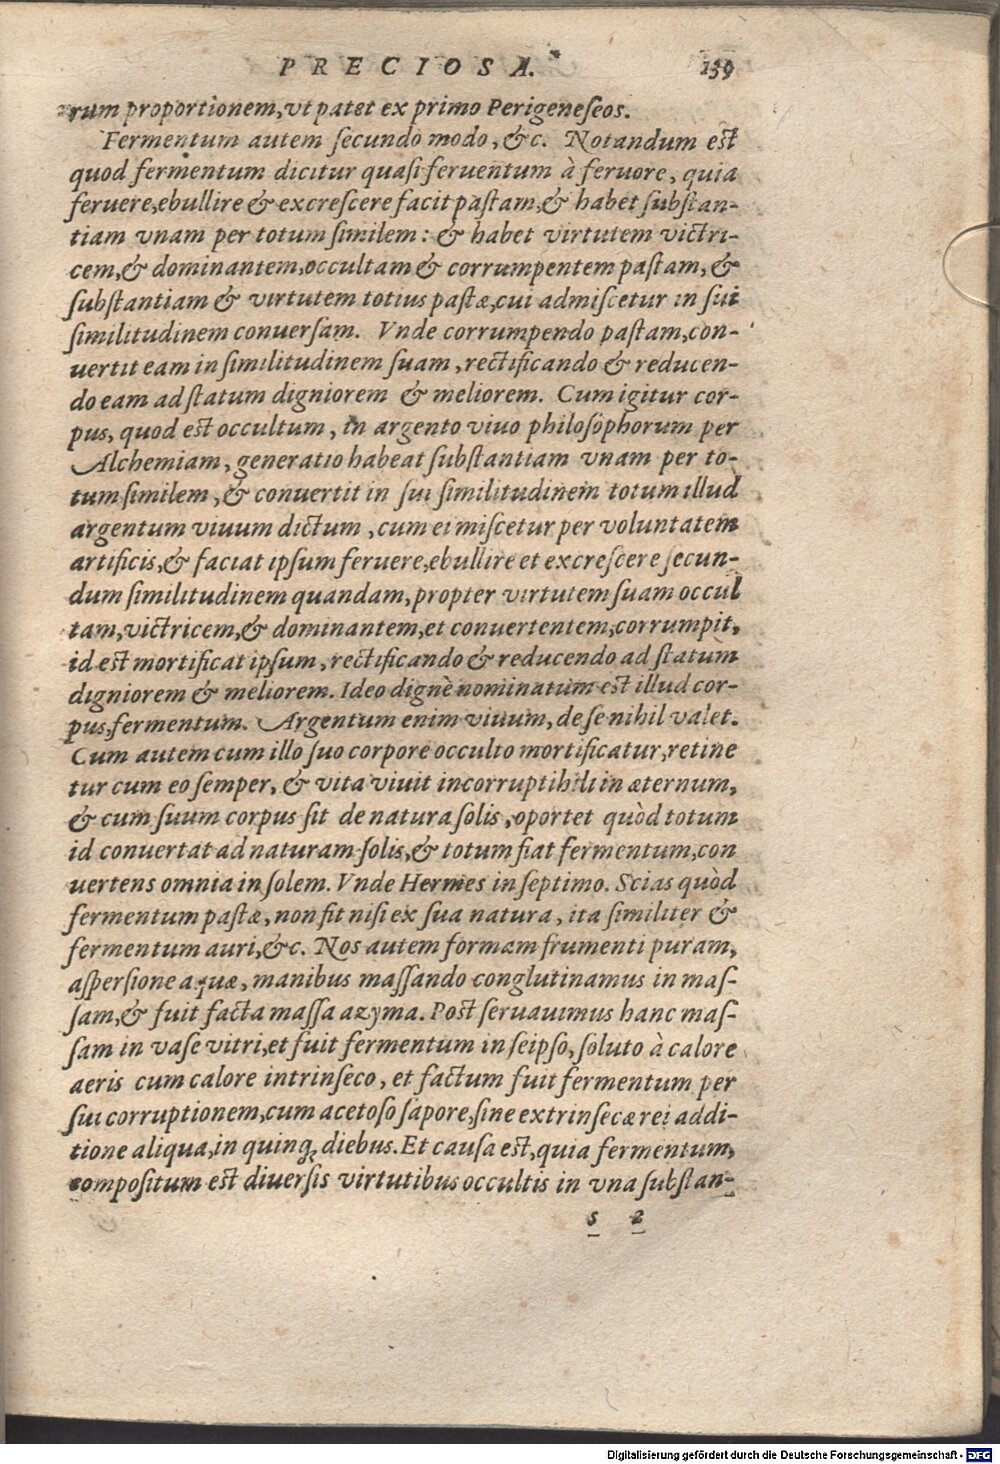 PRECIOSA. 139
rum proportionem, vt patet ex primo Perigeneseos.
Fermentum autem secundo modo, &c. Notandum est
quod fermentum dicitur quasi feruentum à feruore, quia
feruere, ebullire & excrescere facit pastam, & habet substan-
tiam vnam per totum similem: & habet virtutem victri-
cem, & dominantem, occultam & corrumpentem pastam, &
substantiam & virtutem totius pastæ, cui admiscetur in sui
similitudinem conuersam. Vnde corrumpendo pastam, con-
uertit eam in similitudinem suam, rectificando & reducen-
do eam ad statum digniorem & meliorem. Cum igitur cor-
pus, quod est occultum, in argento viuo philosophorum per
Alchemiam, generatio habeat substantiam vnam per to-
tum similem, & conuertit in sui similitudinem totum illud
argentum viuum dictum, cum ei miscetur per voluntatem
artificis, & faciat ipsum feruere, ebullire et excrescere secun-
dum similitudinem quandam, propter virtutem suam occul
tam, victricem, & dominantem, et conuertentem, corrumpit,
id est mortificat ipsum, rectificando & reducendo ad statum
digniorem & meliorem. Ideo dignè nominatum est illud cor-
pus, fermentum. Argentum enim viuum, de se nihil valet.
Cum autem cum illo suo corpore occulto mortificatur, retine
tur cum eo semper, & vita viuit incorruptibili in æternum,
& cum suum corpus sit de natura solis, oportet quòd totum
id conuertat ad naturam solis, & totum fiat fermentum, con
uertens omnia in solem. Vnde Hermes in septimo. Scias quòd
fermentum pastæ, non fit nisi ex sua natura, ita similiter &
fermentum auri, &c. Nos autem formam frumenti puram,
aspersione aquæ, manibus massando conglutinamus in mas-
sam, & fuit facta massa azyma. Post seruauimus hanc mas-
sam in vase vitri, et fuit fermentum in seipso, soluto à calore
aeris cum calore intrinseco, et factum fuit fermentum per
sui corruptionem, cum acetoso sapore, sine extrinsecæ rei addi-
tione aliqua, in quinq; diebus. Et causa est, quia fermentum,
compositum est diuersis virtutibus occultis in vna substan-
s 2
Digitalisierung gefördert durch die Deutsche Forschungsgemeinschaft - DFG